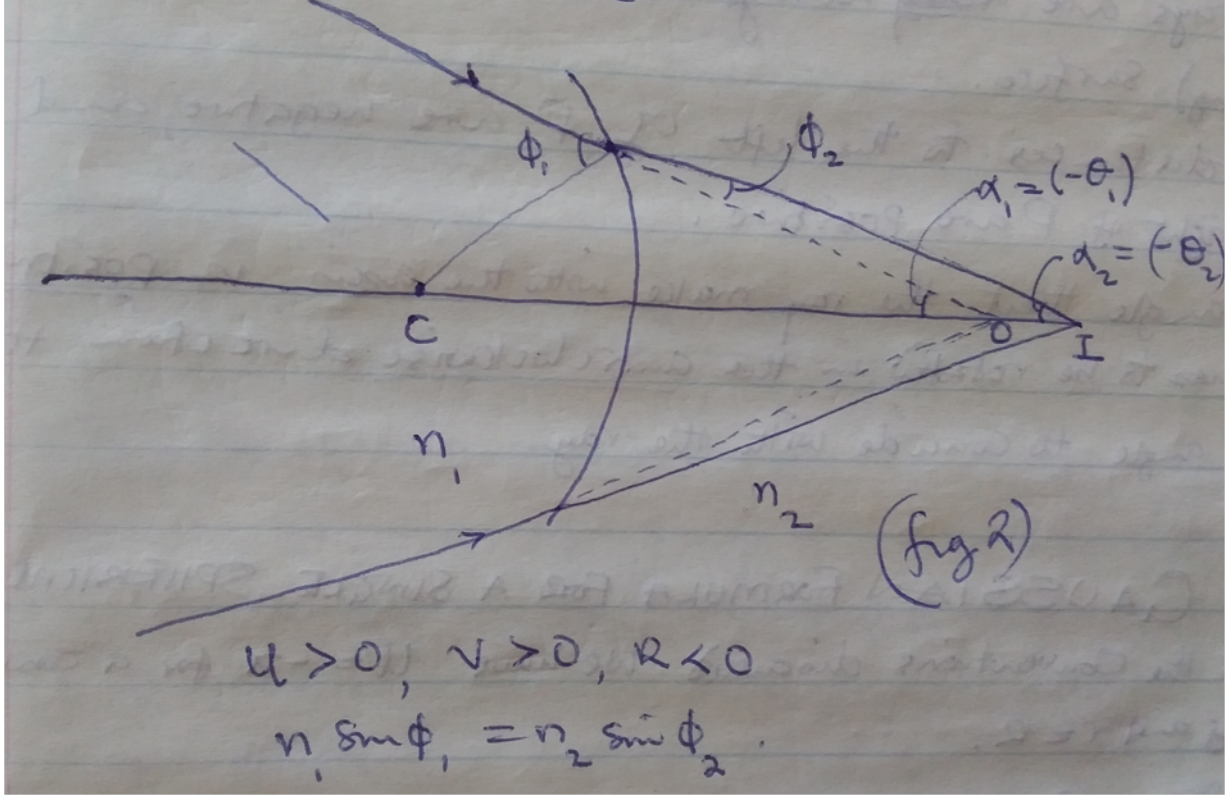 ϕ₁
ϕ₂
α₁ = (-θ₁)
α₂ = (-θ₂)
C
O
I
n₁
n₂
(fig 2)
u > 0, v > 0, R < 0
n₁ sin ϕ₁ = n₂ sin ϕ₂.